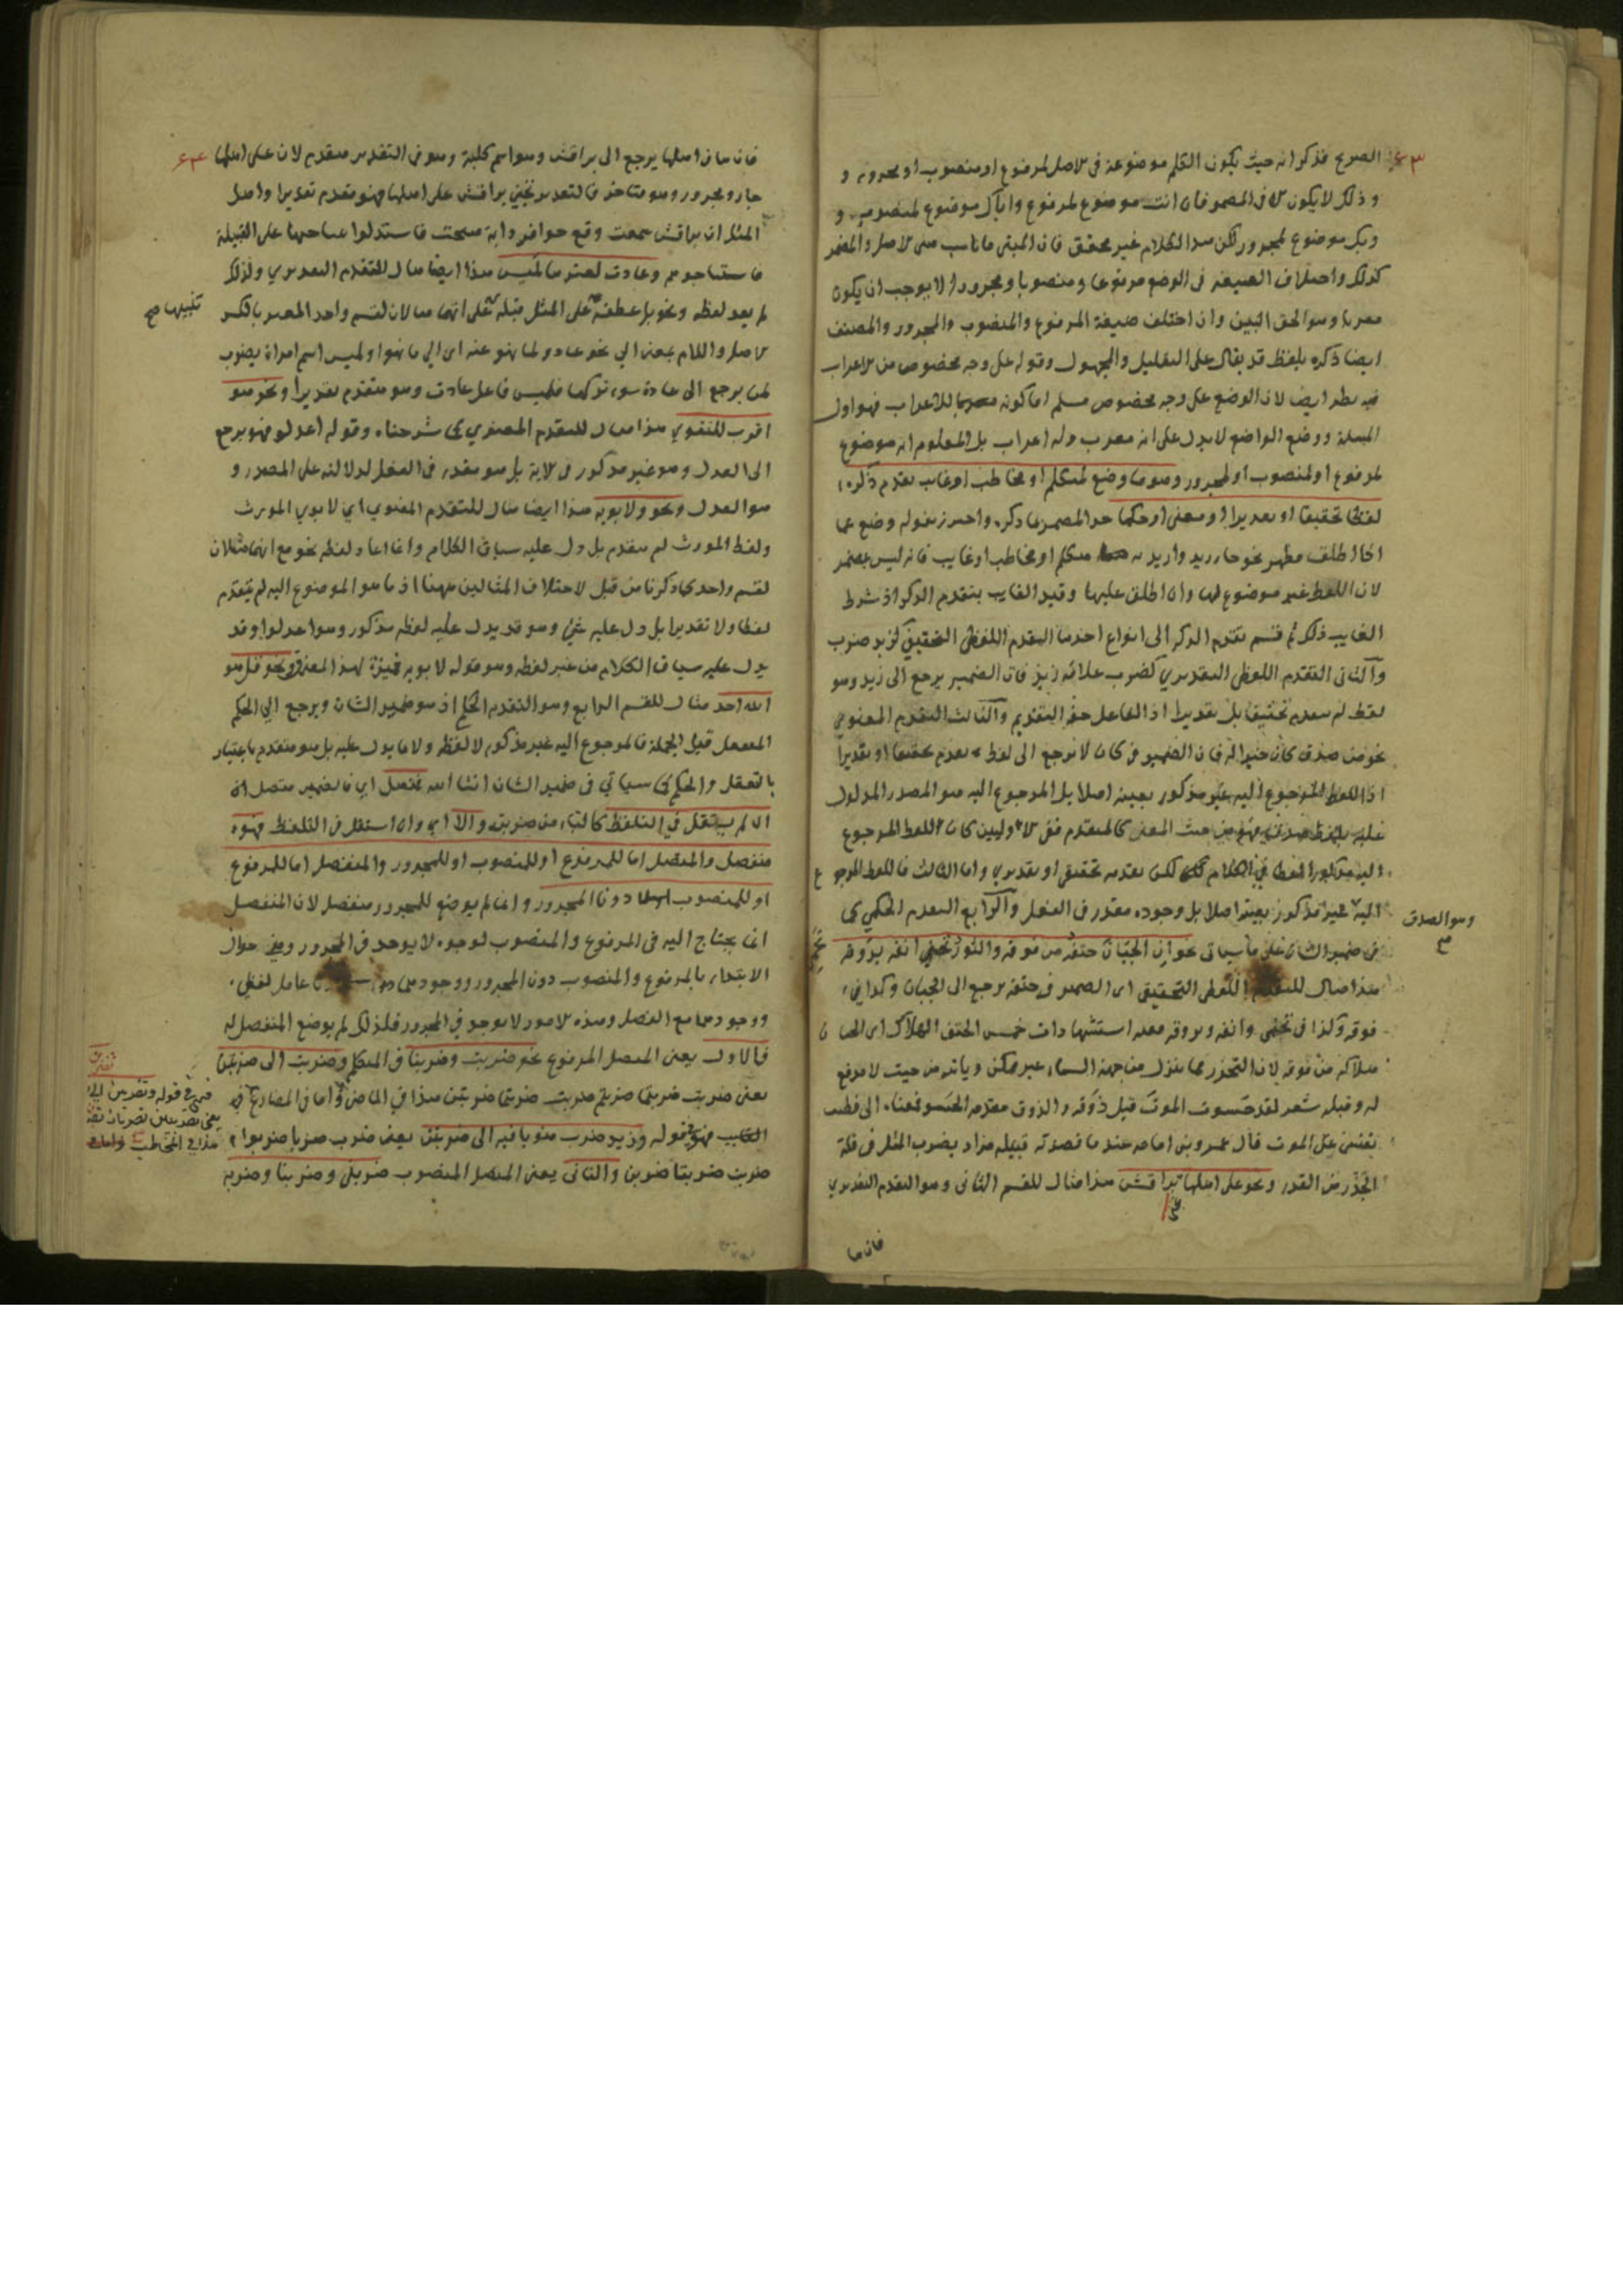 ٤٣
الصريح فذكر انه حيث يكون الكلم موضوعة في الاصل لمرفوع او منصوب او مجرور و
و ذلك لا يكون الا في المضمر فان انت موضوع لمرفوع واياك موضوع لمنصوب و
وبك موضوع لمجرور لكن هذا الكلام غير محقق فان المبنى ما ناسب مبنى الاصل والمضمر
كذلك واختلاف الصيغة في الوضع مرفوعا ومنصوبا ومجرورا لا يوجب ان يكون
معربا وهو الحق البين وان اختلف صيغة المرفوع والمنصوب والمجرور والمصنف
ايضا ذكره بلفظ قد يقال على التقليل والمجهول وقوله على وجه مخصوص من الاعراب
فيه نظر ايضا لان الوضع على وجه مخصوص مسلم اما كونه معربا للاعراب فهو اول
المسئلة ووضع الواضع لا يدل على انه معرب وله اعراب بل المعلوم انه موضوع
لمرفوع او لمنصوب او لمجرور وهو ما وضع لمتكلم او مخاطب او غايب تقدم ذكره
لفظا تحقيقا او تقديرا او معنى او حكما حد المضمر بما ذكره واحترز بقوله وضع عما
اذا اطلق مظهر نحو جاء زيد واريد به متكلم او مخاطب او غايب فانه ليس بمضمر
لان اللفظ غير موضوع لها وان اطلق عليها وقيد الغايب بتقدم الذكر اذ شرط
الغايب ذلك ثم قسم تقدم الذكر الى انواع احدها التقدم اللفظي الحقيقي كزيد ضرب
والثاني التقدم اللفظي التقديري كضرب غلامه زيد فان الضمير يرجع الى زيد وهو
لفظ لم يتقدم تحقيقا بل تقديرا اذ الفاعل حقه التقديم والثالث التقدم المعنوي
نحو من صدق كان خيرا له فان الضمير في كان لا يرجع الى لفظ تقدم تحقيقا او تقديرا
اذ اللفظ المرجوع اليه غير مذكور بعينه اصلا بل المرجوع اليه هو المصدر المدلول
عليه بلفظ صدق فهو من حيث المعنى كالمتقدم ففي الاوليين كان اللفظ المرجوع
اليه مذكورا لفظا في الكلام لكن تقدمه تحقيقي او تقديري واما الثالث فاللفظ المرجوع
اليه غير مذكور بعينه اصلا بل وجوده مقدر في الفعل والرابع التقدم الحكمي كما
وهو الصدق
صح
في ضمير الشان على ما سياتي نحو ان الجبان حتفه من فوقه والثور يحمي انفه بروقه
هذا مثال للتقدم اللفظي التحقيقي اى الضمير في حتفه يرجع الى الجبان وكذا في
فوقه وكذا في يحمي وانفه وبروقه معه استشهادات خمس الحتف الهلاك اى الجبان
هلاكه من فوقه لان التحذر مما ينزل من جهة السماء غير ممكن وياتيه من حيث لا مدفع
له وقبله شعر لقد حسوت الموت قبل ذوقه والذوق مقدم الحسو فمعناه الى وطنت
نفسي على الموت قال عمرو بن امامه عندما قصدته قبيلة مراد يضرب المثل في قلة
الحذر من القدر ونحو على اهلها براقش هذا مثال للقسم الثاني وهو التقدم التقديري
تجني
فان ها
٤٤
فان ها في اهلها يرجع الى براقش وهو اسم كلبة وهو في التقدير متقدم لان على اهلها
جار ومجرور وهو متاخر فالتقدير تجني براقش على اهلها فهو متقدم تقديرا واصل
المثل ان براقش سمعت وقع حوافر دابة فنبحت فاستدلوا بنباحها على القبيلة
فاستباحوهم وعادت لعترها لميس هذا ايضا مثال للتقدم التقديري ولذلك
لم يعد لفظه ونحو بل عطفه على المثل قبله تنبيها على انهما مثالان لقسم واحد العتر بالكسر
تنبيها صح
الاصل واللام بمعنى الى نحو عادوا لما نهوا عنه اي الى ما نهوا ولميس اسم امراة يضرب
لمن يرجع الى عادة سوء تركها فلميس فاعل عادت وهو متقدم تقديرا ونحو هو
اقرب للتقوى هذا مثال للتقدم المعنوي كما شرحناه وقوله اعدلوا فهو يرجع
الى العدل وهو غير مذكور في الاية بل هو مقدر في الفعل لدلالته على المصدر و
هو العدل ونحو ولابويه هذا ايضا مثال للتقدم المعنوي اي لابوي المورث
ولفظ المورث لم يتقدم بل دل عليه سياق الكلام وانما اعاد لفظه نحو مع انهما مثالان
لقسم واحد كما ذكرنا من قبل لاختلاف المثالين ههنا اذ ما هو الموضوع اليه لم يتقدم
لفظا ولا تقديرا بل دل عليه شئ وهو قد يدل عليه لفظ مذكور وهو اعدلوا وقد
يدل عليه سياق الكلام من غير لفظه وهو قوله لابويه فميزه لهذا المعنى ونحو قل هو
الله احد مثال للقسم الرابع وهو التقدم الحكمي اذ هو ضمير الشان ويرجع الى الحكم
المتعقل قبل الجملة فالمرجوع اليه غير مذكور لا لفظه ولا ما يدل عليه بل هو متقدم باعتبار
التعقل والحكم كما سياتي في ضمير الشان انشاء الله فمتصل اي فالضمير متصل ان
لم يستقل في التلفظ كالتاء من ضربت والا اي وان استقل في التلفظ فهو
منفصل والمتصل اما للمرفوع او للمنصوب او للمجرور والمنفصل اما للمرفوع
او للمنصوب دون المجرور وانما لم يوضع للمجرور منفصل لان المنفصل
انما يحتاج اليه في المرفوع والمنصوب لوجوه لا يوجد في المجرور وهي جواز
الابتداء بالمرفوع والمنصوب دون المجرور ووجودهما عامل لفظي
ووجودهما مع الفصل وهذه الامور لا توجد في المجرور فلذلك لم يوضع المنفصل له
فالاول يعني المتصل المرفوع نحو ضربت وضربنا في المتكلم وضربت الى ضربتن
يعني ضربت ضربتما ضربتم ضربت ضربتما ضربتن هذا في الماضي واما في المضارع
الغايب فهو قوله وزيد ضرب منويا فيه الى ضربن يعني ضرب ضربا ضربوا
ضربت ضربتا ضربن والثاني يعني المتصل المنصوب ضربني وضربنا وضربه
تضربن
فهي في قوله وتضربين الى
يعني تضربين تضربان تضربن
هذا في المخاطب